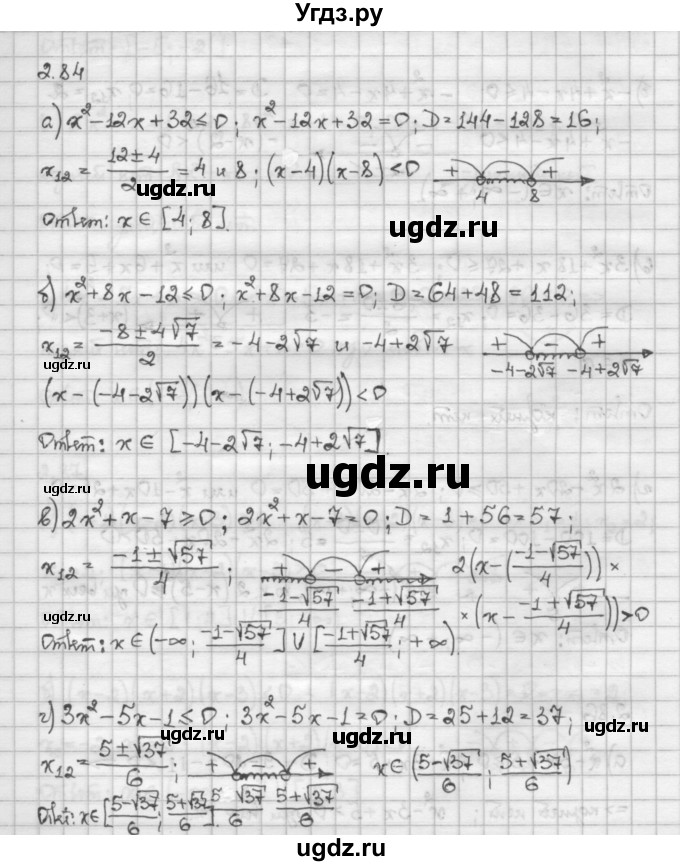 Угдз.ру
2.84
а) x² − 12x + 32 ≤ 0; x² − 12x + 32 = 0; D = 144 − 128 = 16;
x₁₂ = (12 ± 4)/2 = 4 и 8; (x − 4)(x − 8) < 0
+ − +
4 8
ugdz.ru
ugdz.ru
Ответ: x ∈ [4; 8].
б) x² + 8x − 12 ≤ 0; x² + 8x − 12 = 0; D = 64 + 48 = 112;
x₁₂ = (−8 ± 4√7)/2 = −4 − 2√7 и −4 + 2√7
+ − +
−4−2√7 −4+2√7
ugdz.ru
(x − (−4 − 2√7))(x − (−4 + 2√7)) < 0
Ответ: x ∈ [−4 − 2√7; −4 + 2√7].
ugdz.ru
в) 2x² + x − 7 ≥ 0; 2x² + x − 7 = 0; D = 1 + 56 = 57;
x₁₂ = (−1 ± √57)/4;
+ − +
(−1−√57)/4 (−1+√57)/4
2(x − ((−1 − √57)/4)) ×
× (x − (−1 + √57)/4)) > 0
ugdz.ru
Ответ: x ∈ (−∞; (−1−√57)/4] ∪ [(−1+√57)/4; +∞).
г) 3x² − 5x − 1 ≤ 0; 3x² − 5x − 1 = 0; D = 25 + 12 = 37;
ugdz.ru
x₁₂ = (5 ± √37)/6;
+ − +
x ∈ ((5−√37)/6; (5+√37)/6)
(5 √37)/6 (5+√37)/6
x ∈ [(5−√37)/6; (5+√37)/6].
ugdz.ru